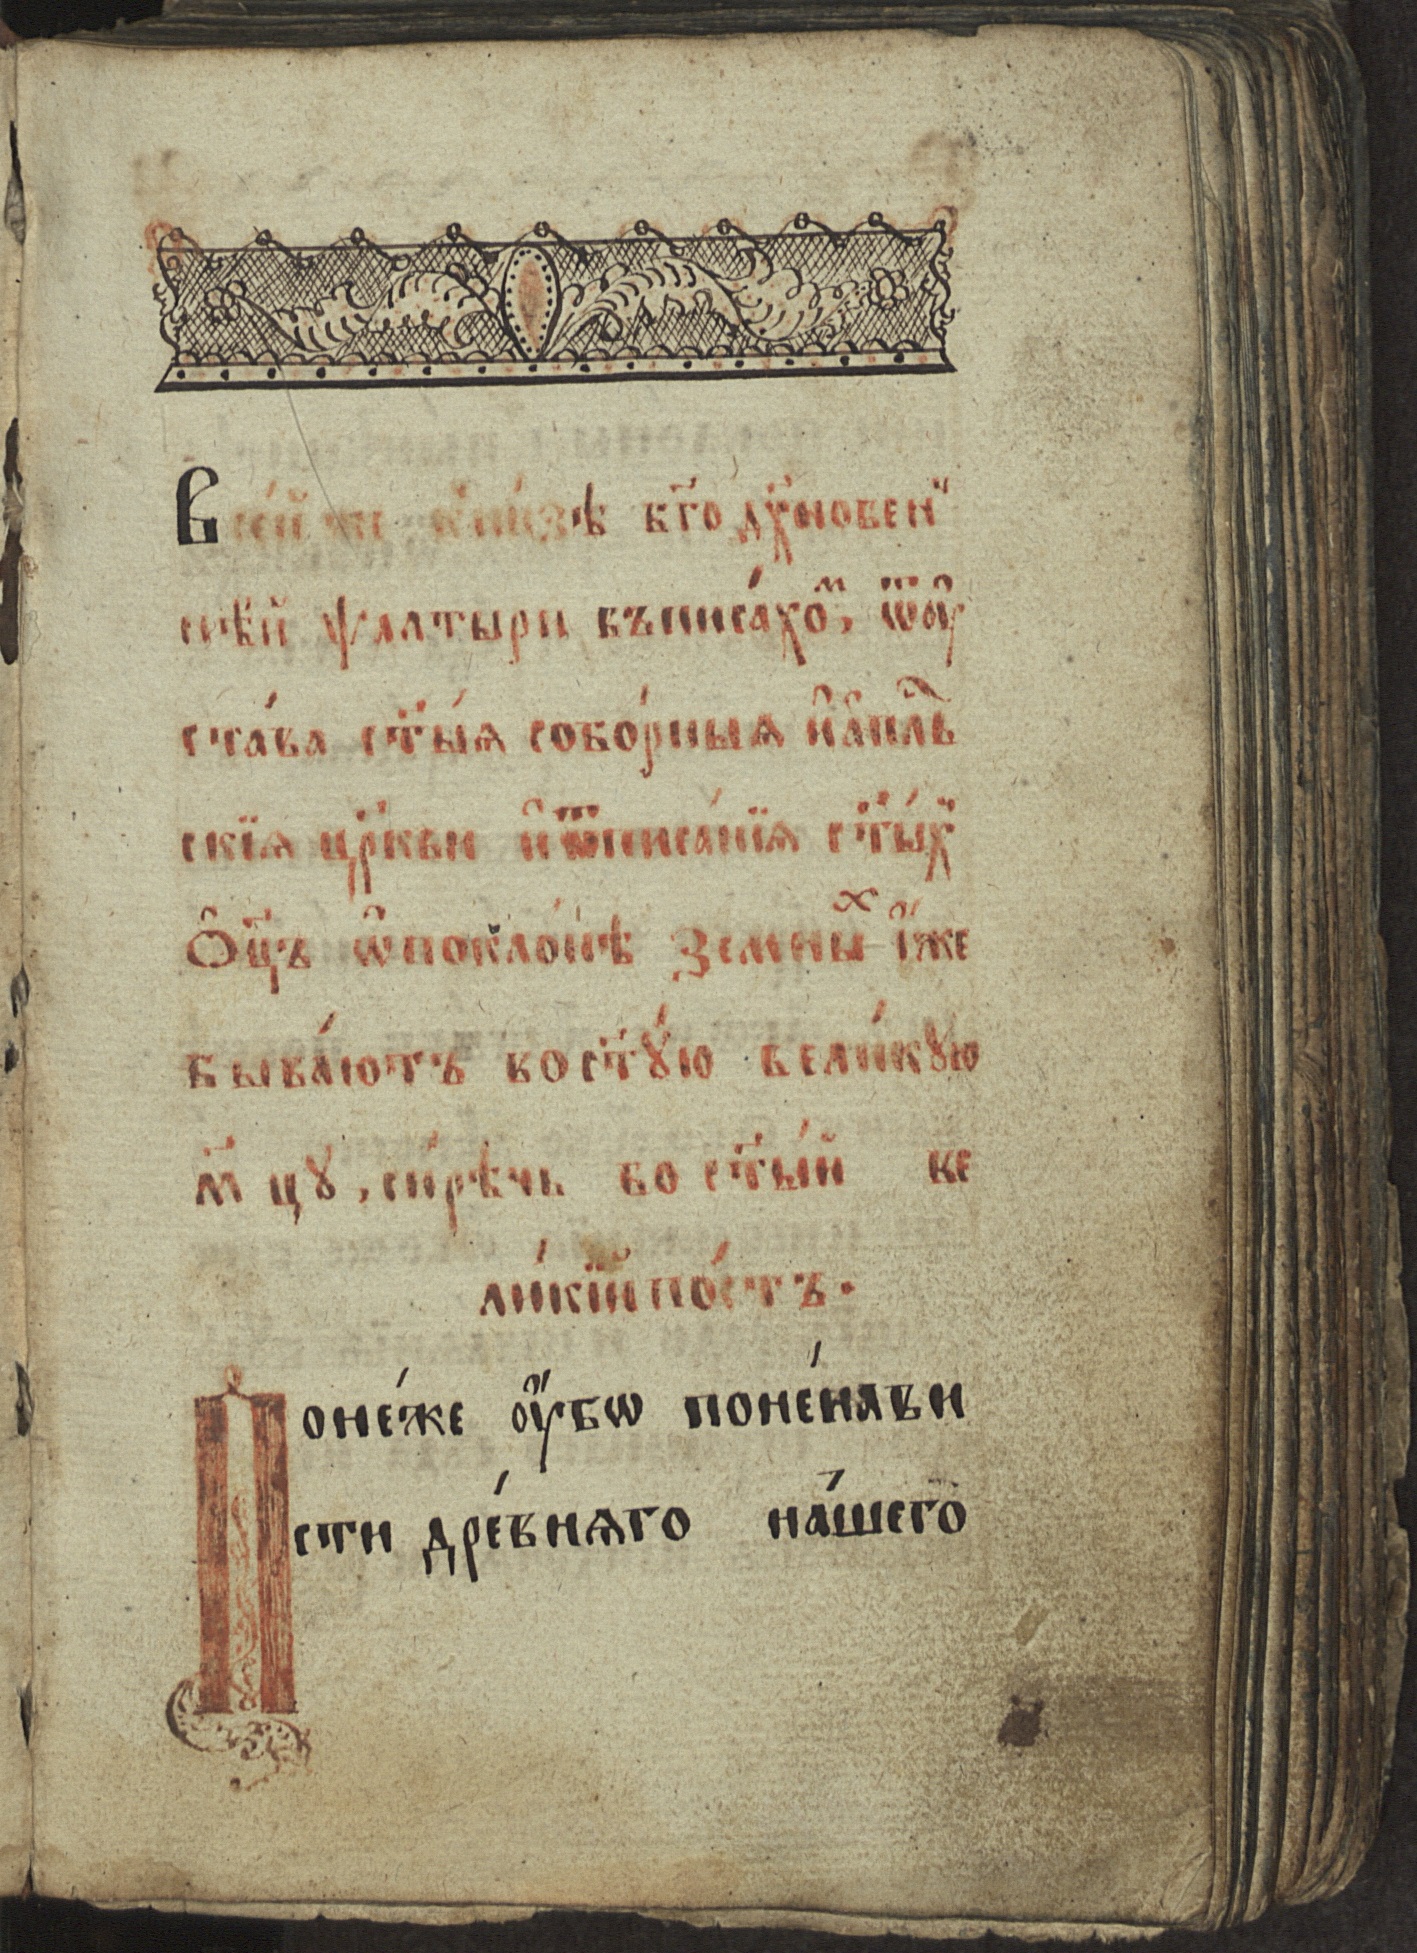 В сей же кни́зѣ бг҃о дꙋхновен
снѣ́й ѱалтыри въписа́хоⷨ, ѿ оу
ста́ва ст҃ы́ѧ собо́рныѧ и҆ а҆пⷭ҇лъ
скїѧ цр҃кви и҆ ѿ писа́нїѧ ст҃ы́х
О҆ц҃ъ ѡ҆ покло́нѣ земны́ⷯ и҆́же
быва́ютъ во ст҃ꙋ́ю вели́кꙋю
м҃цꙋ, си́рѣчь во ст҃ы́й ве
ли́кїй по́стъ.
Поне́же оу҆́бѡ поне́нави
сти дре́внѧго на́шего